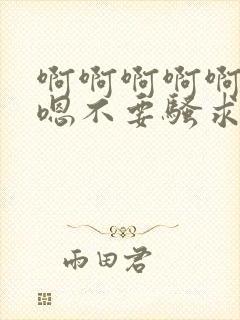 啊啊啊啊啊
嗯不要骚求
雨田君